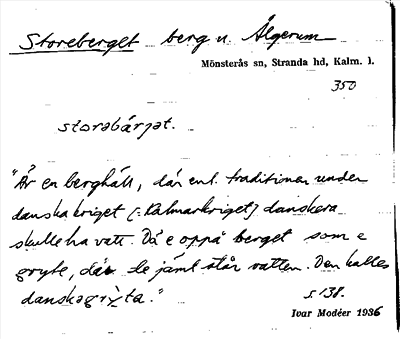 Storeberget berg u. Älgerum
Mönsterås sn, Stranda hd, Kalm. l.
350
storəbárjət.
"Är en berghäll, där enl. traditionen under
danska kriget (: Kalmarkriget) danskera
skulle ha vatt. Dä e oppå berget som e
gryte, där de jämt står vatten. Den kalles
danskəgrỳta."
s 138.
Ivar Modéer 1936